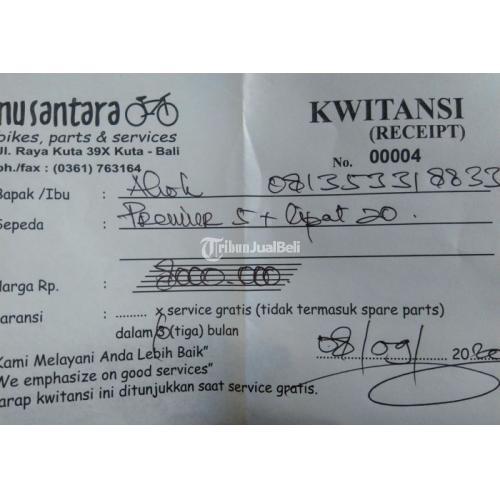 nusantara
bikes, parts & services
Jl. Raya Kuta 39X Kuta - Bali
ph./fax : (0361) 763164
KWITANSI
(RECEIPT)
No. 00004
Bapak /Ibu : Ahok 081353318833
Sepeda : Premier 5 + 20.
TribunJualBeli
Harga Rp. : 7000.000
Garansi : ......... x service gratis (tidak termasuk spare parts)
dalam 3 (tiga) bulan
08/09/ 2020
"Kami Melayani Anda Lebih Baik"
"We emphasize on good services"
Harap kwitansi ini ditunjukkan saat service gratis.